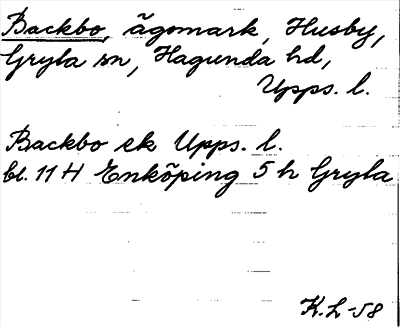 Backbo, ägomark, Husby,
Gryta sn, Hagunda hd,
Upps. l.
Backbo ek Upps. l.
bl. 11 H Enköping 5 h Gryta
K.L-58